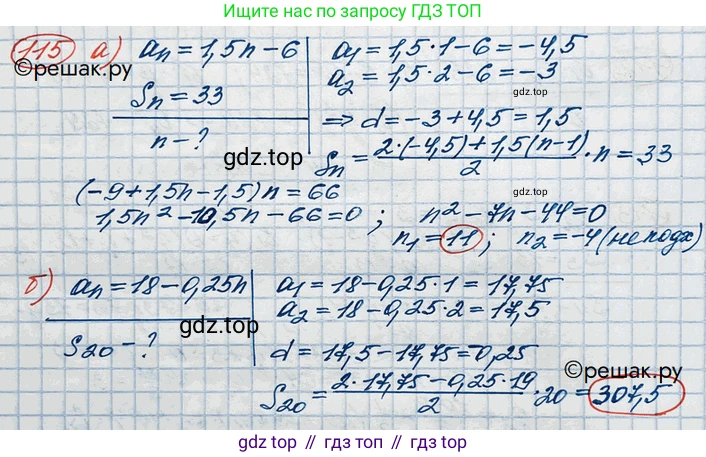 Ищите нас по запросу ГДЗ ТОП
115 а) aₙ = 1,5n − 6
Sₙ = 33
n − ?
a₁ = 1,5·1 − 6 = −4,5
a₂ = 1,5·2 − 6 = −3
⇒ d = −3 + 4,5 = 1,5
Sₙ = (2·(−4,5) + 1,5(n−1))/2 · n = 33
(−9 + 1,5n − 1,5)n = 66
1,5n² − 10,5n − 66 = 0 ; n² − 7n − 44 = 0
n₁ = 11 ; n₂ = −4 (не подх)
б) aₙ = 18 − 0,25n
S₂₀ − ?
a₁ = 18 − 0,25·1 = 17,75
a₂ = 18 − 0,25·2 = 17,5
d = 17,5 − 17,75 = −0,25
S₂₀ = (2·17,75 − 0,25·19)/2 · 20 = 307,5
©reшак.ру
gdz.top
gdz.top
gdz.top
gdz.top
gdz.top
©reшак.ру
gdz top // гдз топ // gdz.top